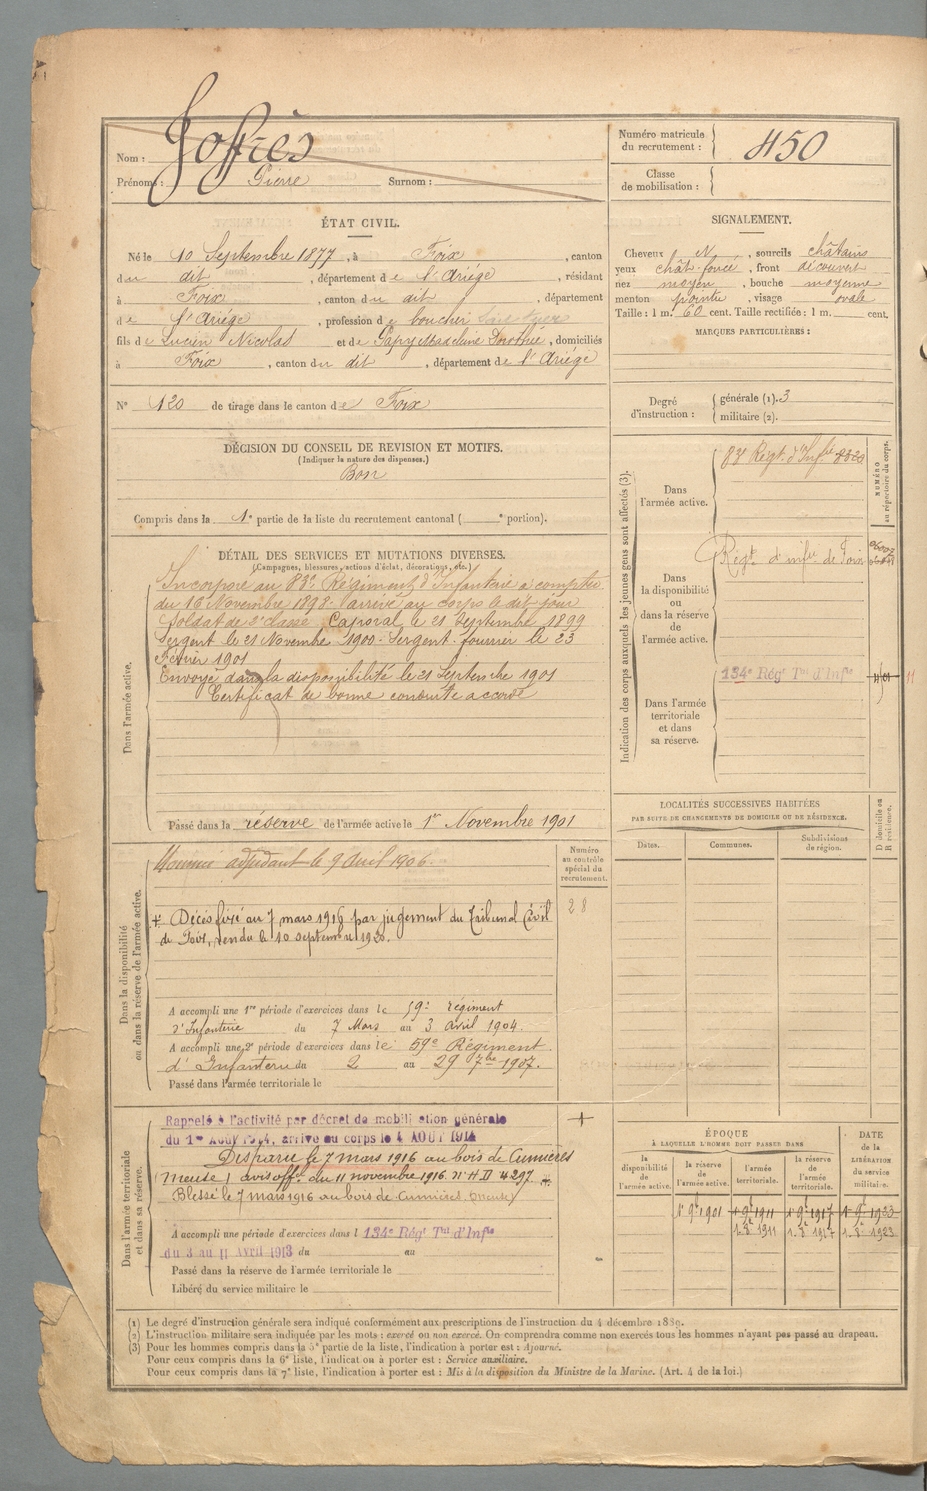 Nom : Joffrès
Prénoms : Pierre Surnom :
Numéro matricule du recrutement : 450
Classe de mobilisation :
ÉTAT CIVIL.
Né le 10 Septembre 1877, à Foix, canton
du dit, département de l'Ariège, résidant
à Foix, canton du dit, département
de l'Ariège, profession de boucher
fils de Lucien Nicolas et de Papy Madeleine Dorothée, domiciliés
à Foix, canton du dit, département de l'Ariège
N° 120 de tirage dans le canton de Foix
SIGNALEMENT.
Cheveux N, sourcils châtains
yeux chât. foncé, front découvert
nez moyen, bouche moyenne
menton pointu, visage ovale
Taille : 1 m. 60 cent. Taille rectifiée : 1 m. cent.
MARQUES PARTICULIÈRES :
Degré d'instruction : générale (1). 3
militaire (2).
DÉCISION DU CONSEIL DE REVISION ET MOTIFS.
(Indiquer la nature des dispenses.)
Bon
Compris dans la 1e partie de la liste du recrutement cantonal ( e portion).
DÉTAIL DES SERVICES ET MUTATIONS DIVERSES.
(Campagnes, blessures, actions d'éclat, décorations, etc.)
Dans l'armée active.
Incorporé au 83e Régiment d'Infanterie à compter
du 16 Novembre 1898. Arrivé au corps le dit jour
soldat de 2e classe. Caporal le 21 Septembre 1899
Sergent le 21 Novembre 1900 - Sergent fourrier le 23
Février 1901
Envoyé dans la disponibilité le 21 Septembre 1901
Certificat de bonne conduite accordé
Passé dans la réserve de l'armée active le 1er Novembre 1901
Indication des corps auxquels les jeunes gens sont affectés (3).
NUMÉRO au répertoire du corps.
Dans l'armée active.
83e Régt d'Infie
Dans la disponibilité ou dans la réserve de l'armée active.
Régt d'infie de Foix
Dans l'armée territoriale et dans sa réserve.
134e Régt Tal d'Infie
11
LOCALITÉS SUCCESSIVES HABITÉES
PAR SUITE DE CHANGEMENTS DE DOMICILE OU DE RÉSIDENCE.
Dates. Communes. Subdivisions de région. D domicile ou R résidence.
Dans la disponibilité ou dans la réserve de l'armée active.
Numéro au contrôle spécial du recrutement.
28
Nommé adjudant le 9 Avril 1906.
+ Décès fixé au 7 mars 1916 par jugement du Tribunal Civil
de Foix, rendu le 10 septembre 1920.
A accompli une 1re période d'exercices dans le 59e régiment
d'Infanterie du 7 Mars au 3 avril 1904.
A accompli une 2e période d'exercices dans le 59e Régiment
d'Infanterie du 2 au 29 7bre 1907.
Passé dans l'armée territoriale le
Dans l'armée territoriale et dans sa réserve.
Rappelé à l'activité par décret de mobilisation générale
du 1er Août 1914, arrivé au corps le 4 AOUT 1914
Disparu le 7 mars 1916 au bois de Cumières
(Meuse) avis offel du 11 novembre 1916 n° HD 4297. +
Blessé le 7 mars 1916 au bois de Cumières (Meuse)
A accompli une période d'exercices dans l 134e Régt Tal d'Infie
du 3 au 11 Avril 1913 du au
Passé dans la réserve de l'armée territoriale le
Libéré du service militaire le
ÉPOQUE
À LAQUELLE L'HOMME DOIT PASSER DANS
la disponibilité de l'armée active. la réserve de l'armée active. l'armée territoriale. la réserve de l'armée territoriale.
DATE de la LIBÉRATION du service militaire.
1er 9bre 1901 1er 9bre 1911 1er 9bre 1917 1er 9bre 1923
1. 8bre 1911 1. 8bre 1917 1. 8bre 1923
(1) Le degré d'instruction générale sera indiqué conformément aux prescriptions de l'instruction du 4 décembre 1889.
(2) L'instruction militaire sera indiquée par les mots : exercé ou non exercé. On comprendra comme non exercés tous les hommes n'ayant pas passé au drapeau.
(3) Pour les hommes compris dans la 5e partie de la liste, l'indication à porter est : Ajourné.
Pour ceux compris dans la 6e liste, l'indication à porter est : Service auxiliaire.
Pour ceux compris dans la 7e liste, l'indication à porter est : Mis à la disposition du Ministre de la Marine. (Art. 4 de la loi.)